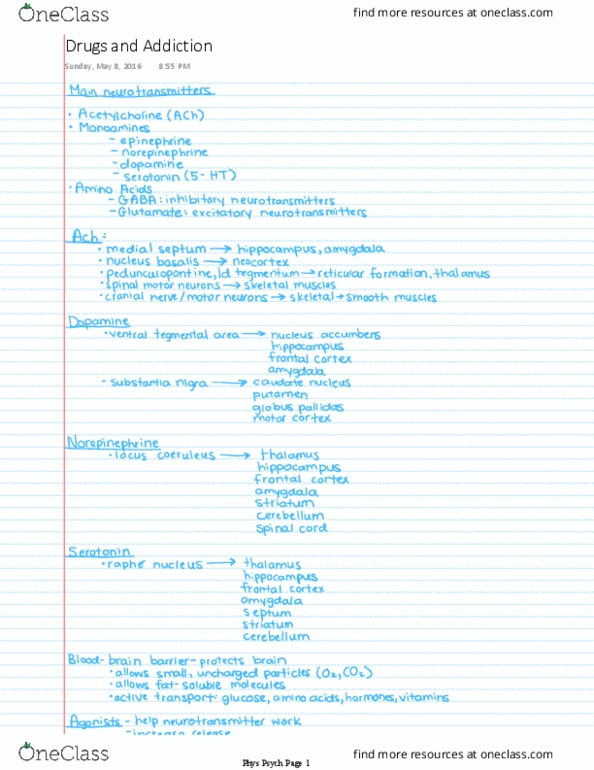 OneClass
find more resources at oneclass.com
Drugs and Addiction
Sunday, May 8, 2016 8:55 PM
Main neurotransmitters
• Acetylcholine (ACh)
• Monoamines
- epinephrine
- norepinephrine
- dopamine
- serotonin (5-HT)
• Amino Acids
- GABA: inhibitory neurotransmitters
- Glutamate: excitatory neurotransmitters
Ach:
• medial septum → hippocampus, amygdala
• nucleus basalis → neocortex
• pedunculopontine, ld tegmentum → reticular formation, thalamus
• spinal motor neurons → skeletal muscles
• cranial nerve/motor neurons → skeletal + smooth muscles
Dopamine
• ventral tegmental area → nucleus accumbens
hippocampus
frontal cortex
amygdala
• substantia nigra → caudate nucleus
putamen
globus pallidas
motor cortex
Norepinephrine
• locus coeruleus → thalamus
hippocampus
frontal cortex
amygdala
striatum
cerebellum
spinal cord
Serotonin
• raphe nucleus → thalamus
hippocampus
frontal cortex
amygdala
septum
striatum
cerebellum
Blood-brain barrier - protects brain
• allows small, uncharged particles (O2, CO2)
• allows fat-soluble molecules
• active transport: glucose, amino acids, hormones, vitamins
Agonists - help neurotransmitter work
- increase release
OneClass
Phys Psych Page 1
find more resources at oneclass.com